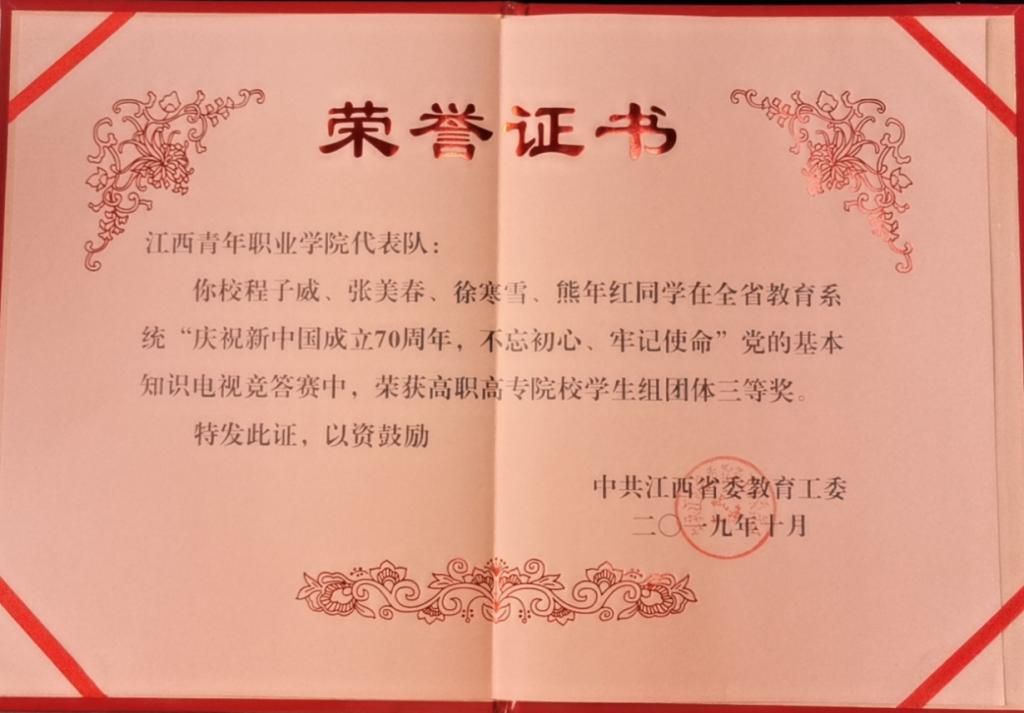 荣誉证书
江西青年职业学院代表队：
你校程子威、张美春、徐寒雪、熊年红同学在全省教育系
统“庆祝新中国成立70周年，不忘初心、牢记使命”党的基本
知识电视竞答赛中，荣获高职高专院校学生组团体三等奖。
特发此证，以资鼓励
中共江西省委教育工委
二〇一九年十月